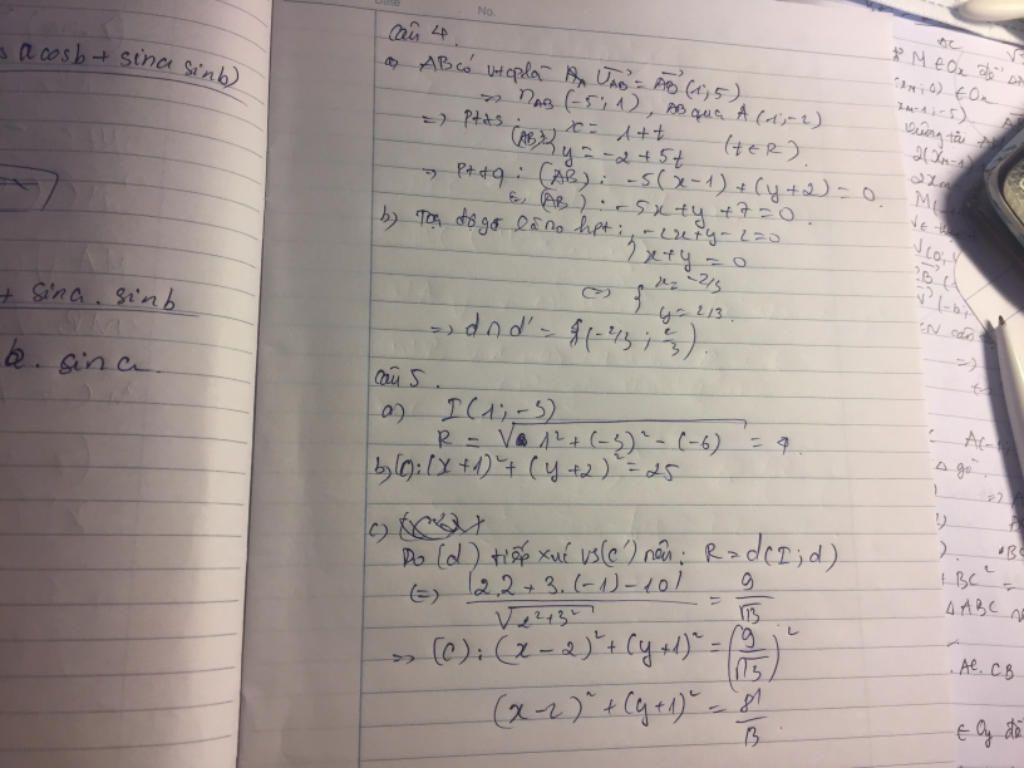 Date No.
s a cosb + sina sinb)
+ sina . sinb
sina
Câu 4.
a) AB có vtcp là U_AB = AB (1; 5)
=> n_AB (-5; 1), AB qua A (1; -2)
=> Ptts: (AB) { x = 1 + t
y = -2 + 5t (t ∈ R).
=> Pttq: (AB): -5(x-1) + (y+2) = 0.
(AB): -5x + y + 7 = 0.
b) Tọa độ gđ là no hpt: { -2x + y - 2 = 0
x + y = 0
<=> { x = -2/3
y = 2/3.
=> d ∩ d' = {(-2/3; 2/3)}.
Câu 5.
a) I (1; -3)
R = √(1² + (-3)² - (-6)) = 4.
b) (C): (x+1)² + (y+2)² = 25
c)
Do (d) tiếp xúc vs (C') nên: R = d(I; d)
<=> |2.2 + 3.(-1) - 10| / √(2² + 3²) = 9/√13
=> (C): (x-2)² + (y+1)² = (9/√13)²
(x-2)² + (y+1)² = 81/13
M ∈ Ox để
∈ Ox
2(xm-1
A(-
Δ gđ
BC² =
Δ ABC
AC. CB
∈ Oy để